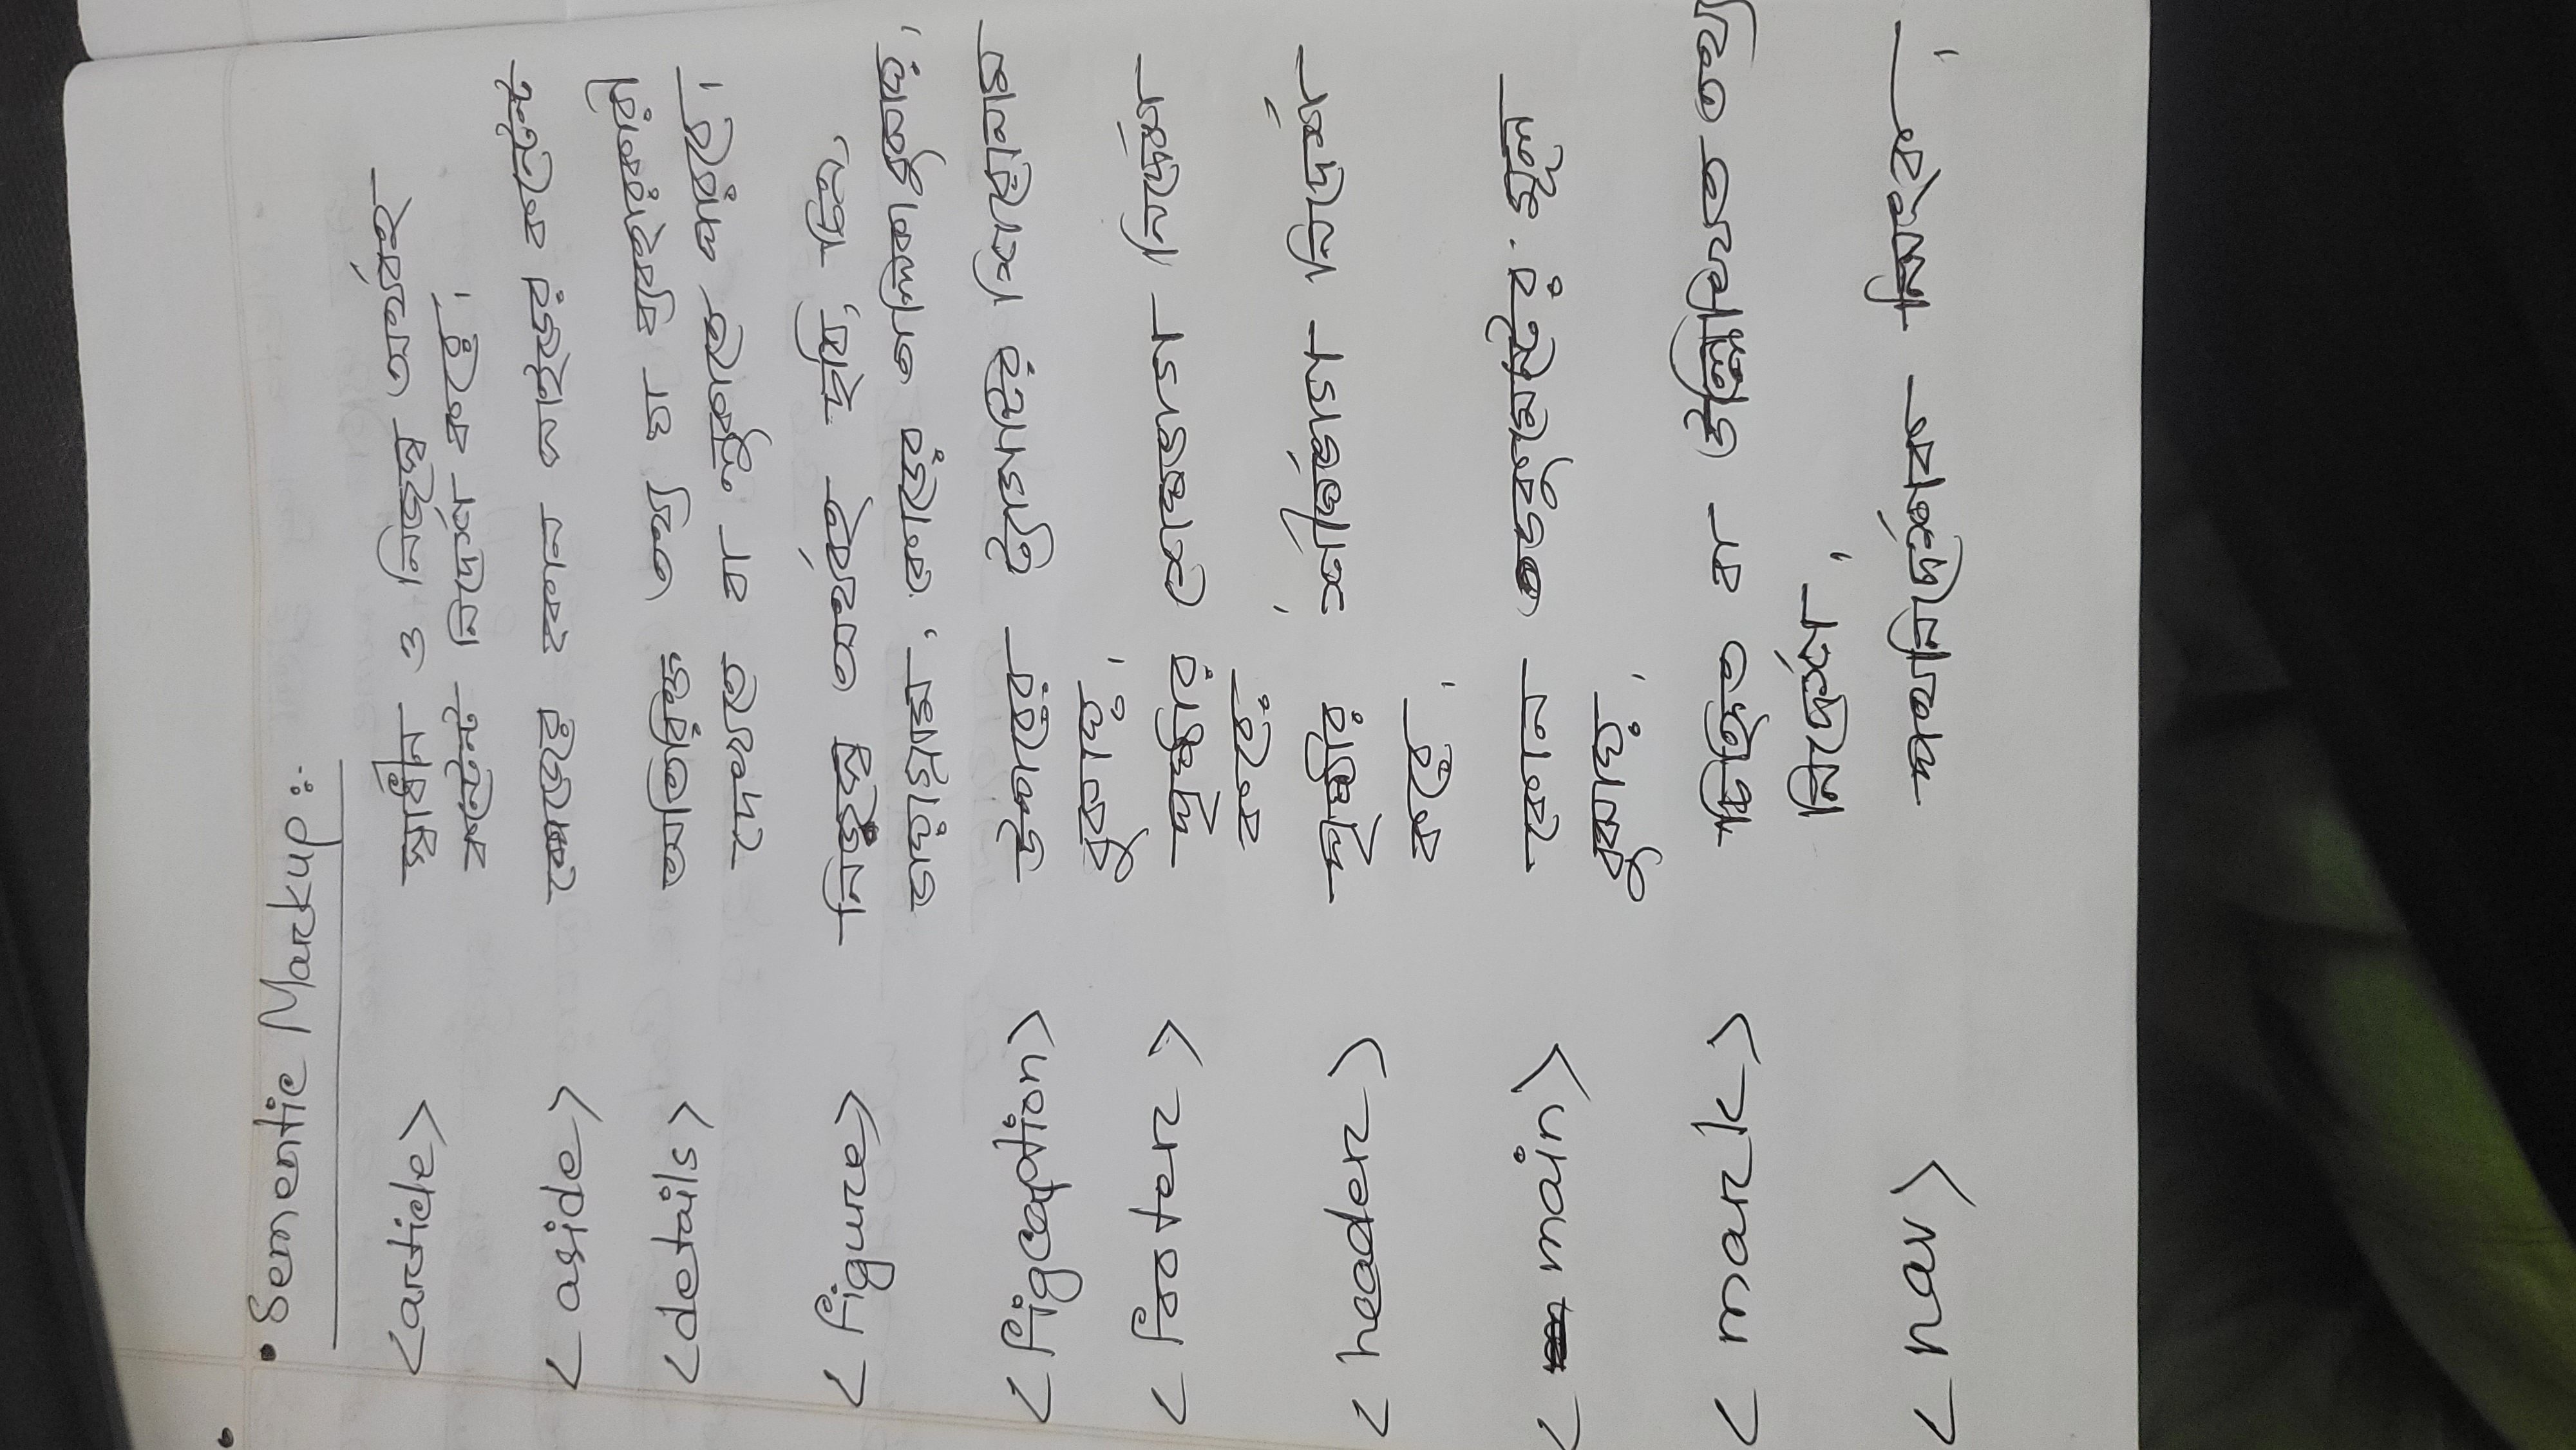 • Sementic Markup :-
<article> স্বাধীন ও নিজস্ব অর্থবহ
কন্টেন্ট নির্দেশ করে।
<aside> পেজের কোন সাইডের কন্টেন্ট
<details> অতিরিক্ত তথ্য যা ব্যবহারকারী
দেখতে বা লুকাতে পারবে।
<figure> নিজস্ব অর্থবহ ছবি, চিত্র,
ডায়াগ্রাম, কোডের তালিকা বুঝায়।
<figcaption> উপরের ট্যাগটির শিরোনাম
বুঝায়।
<footer> পৃষ্ঠার শেষভাগ নির্দেশ
করে
<header> পৃষ্ঠার শীর্ষভাগ নির্দেশ
করে।
<main> কোন ডকুমেন্টের মূল
বুঝায়।
<mark> চিহ্নিত বা উল্লিখিত তথ্য
নির্দেশ।
<nav> পথনির্দেশক